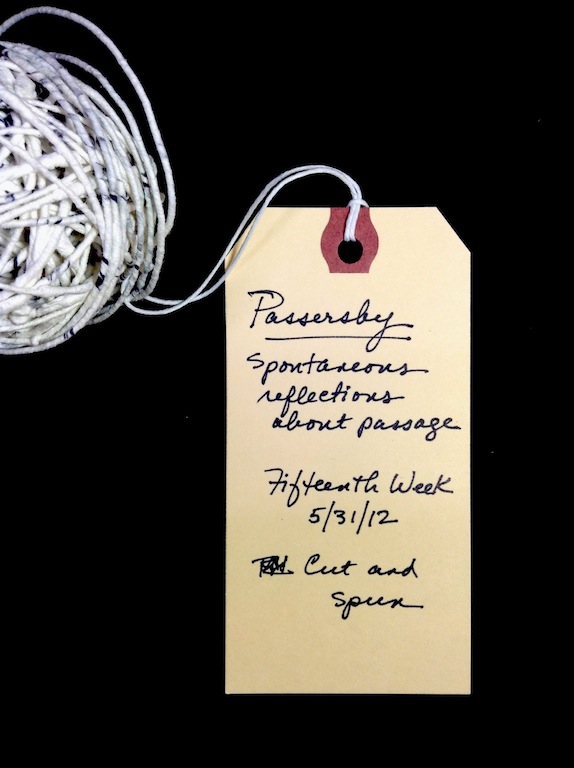 Passersby
Spontaneous
reflections
about passage
Fifteenth Week
5/31/12
Cut and
Spun